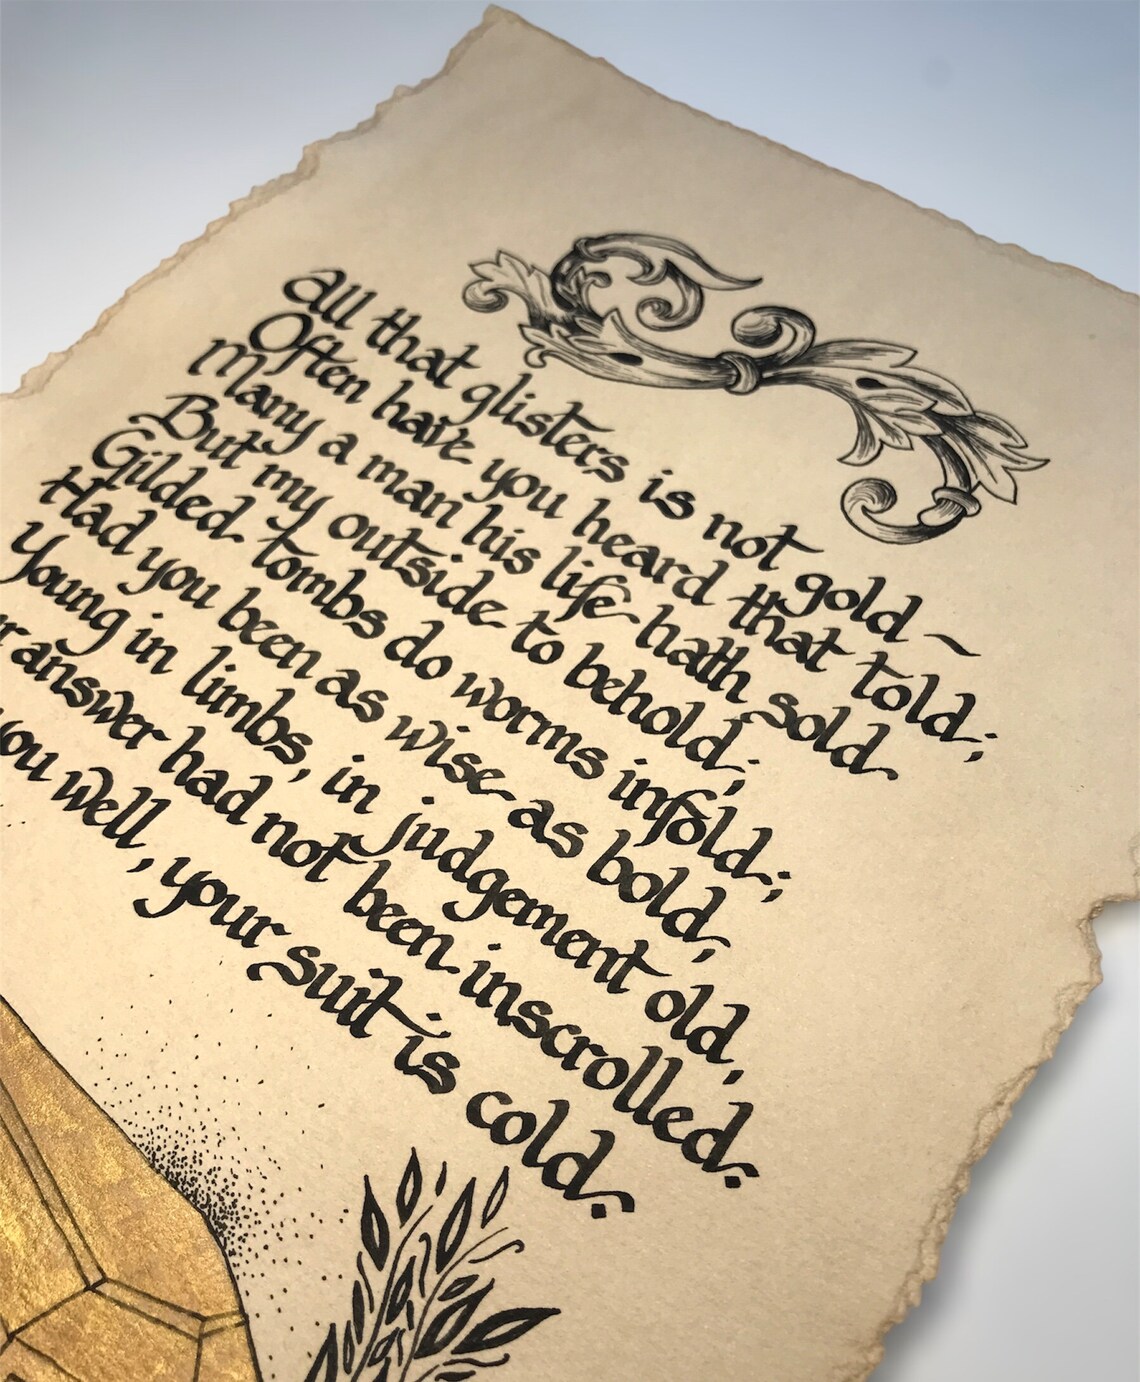 All that glisters is not gold ~
Often have you heard that told;
Many a man his life hath sold
But my outside to behold;
Gilded tombs do worms infold;
Had you been as wise as bold,
Young in limbs, in judgement old,
r answer had not been inscrolled.
you well, your suit is cold.